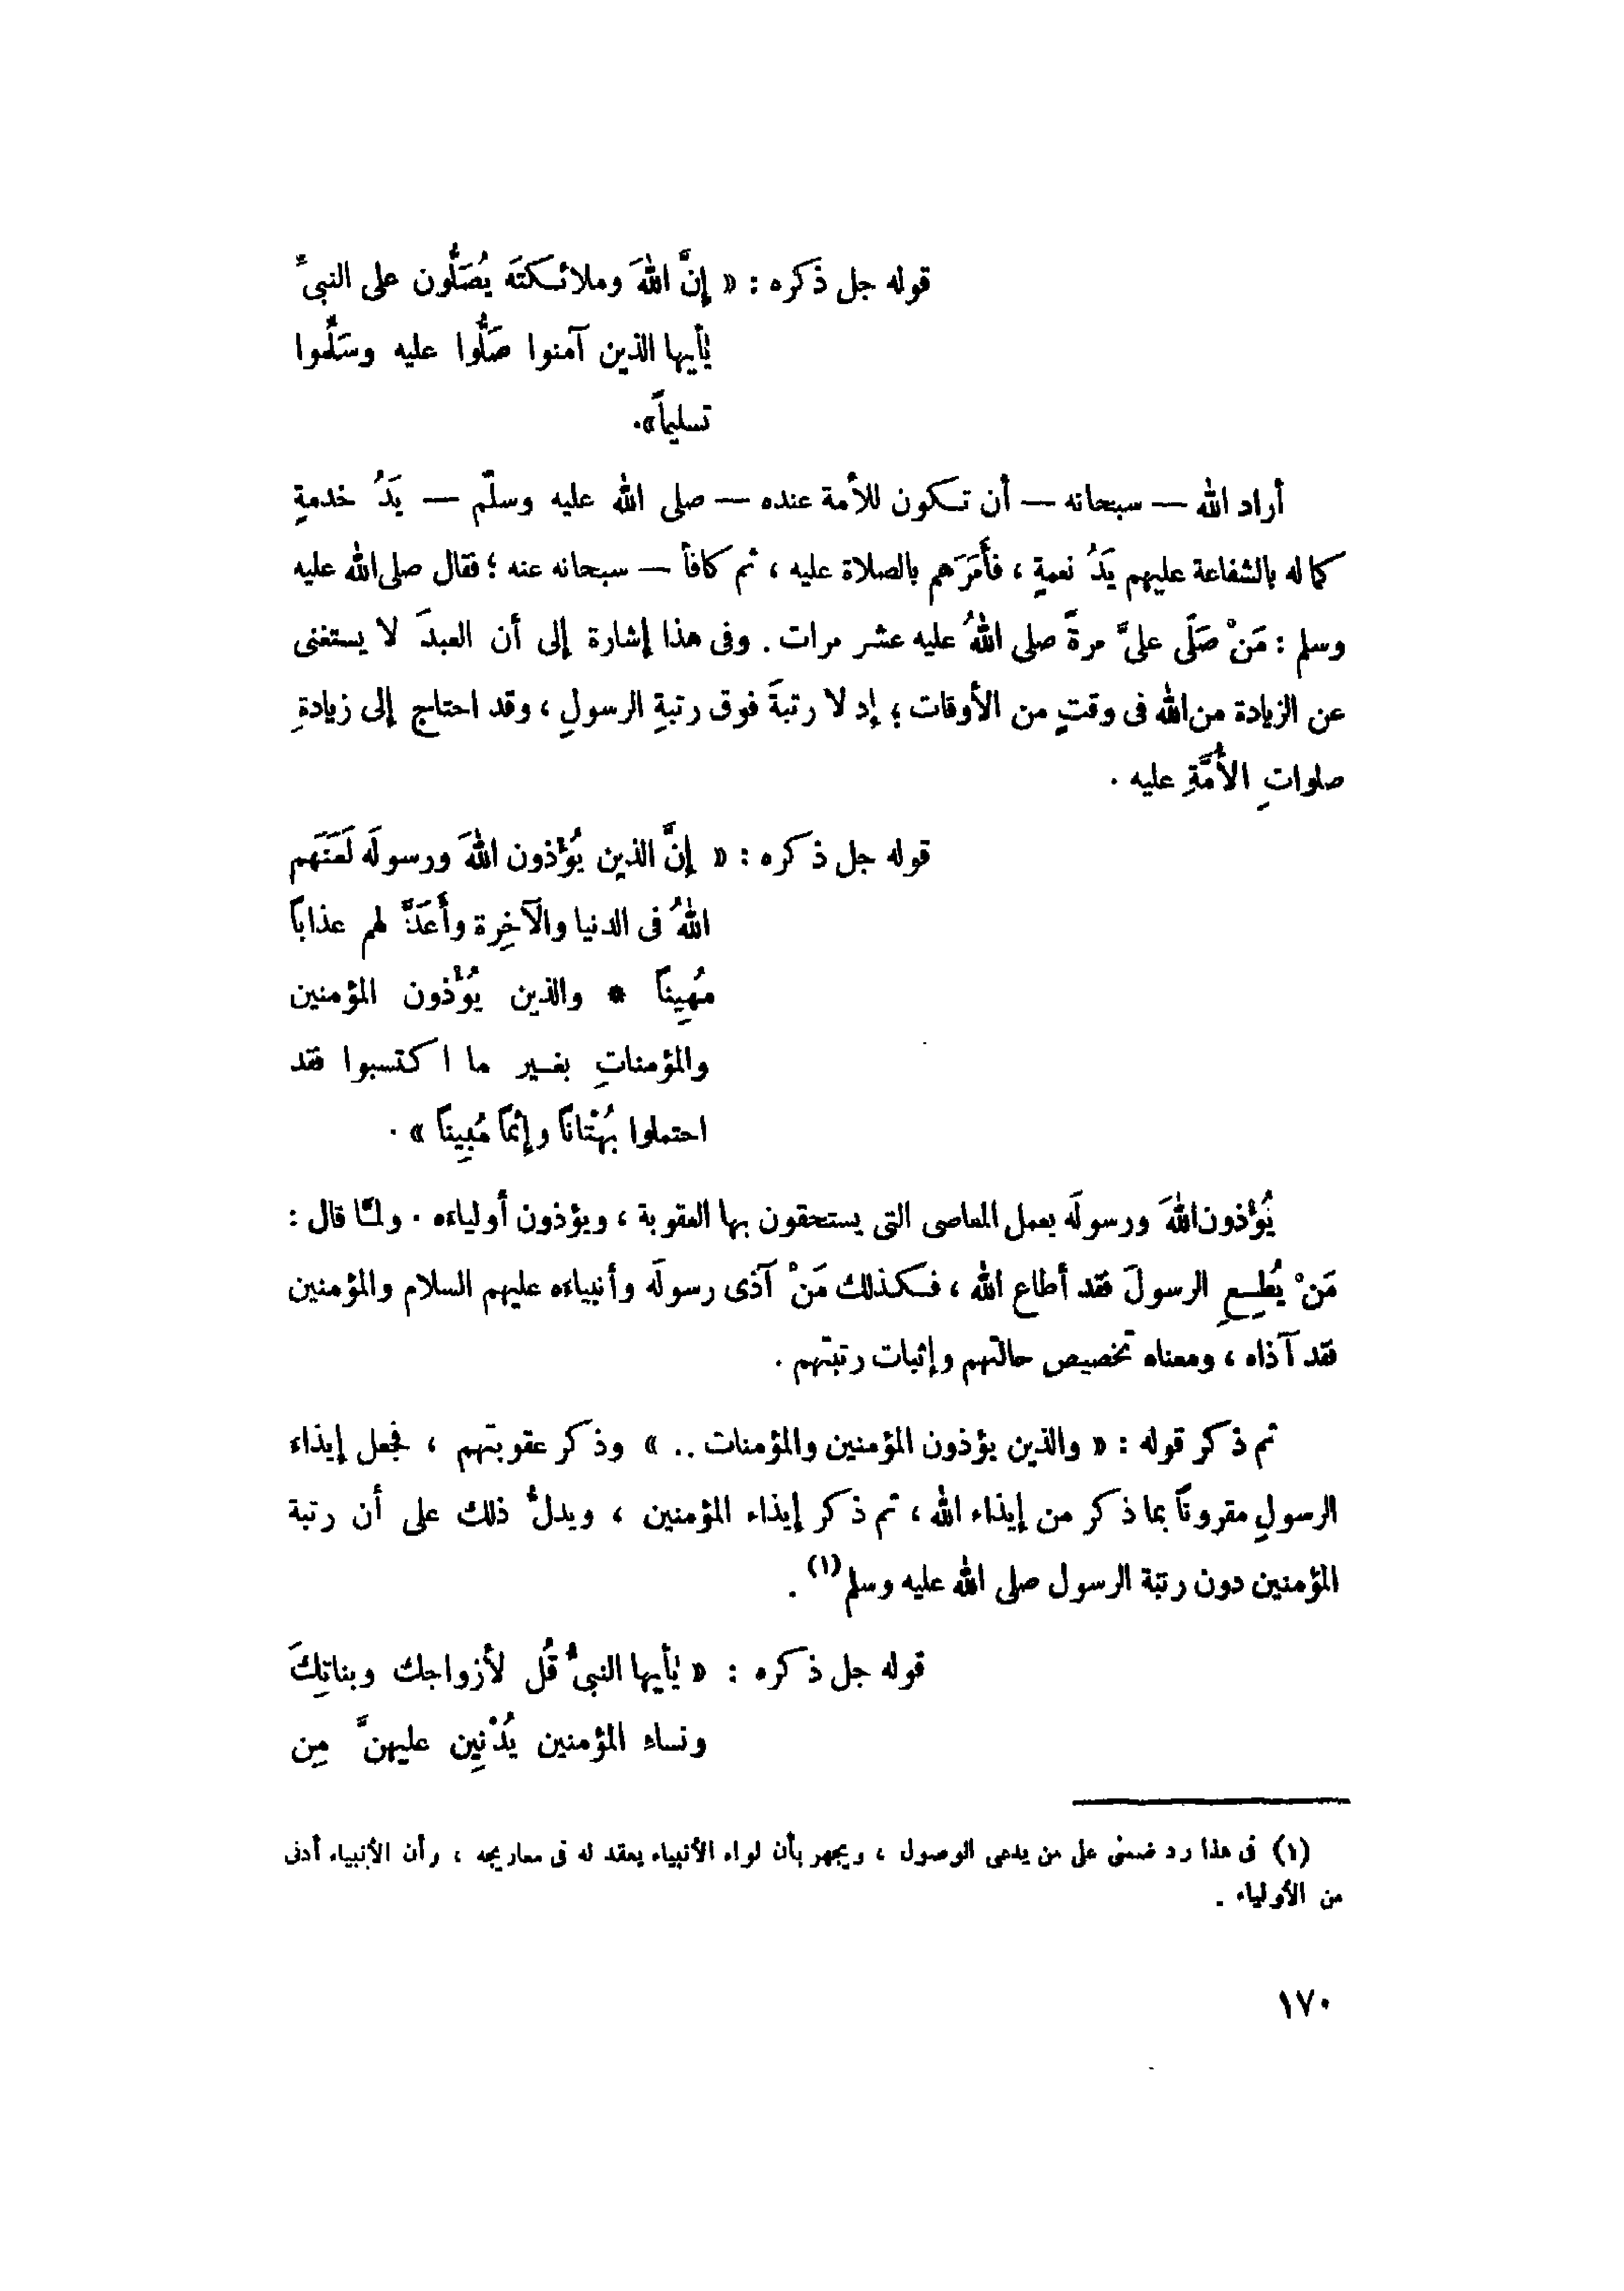 قوله جل ذكره : « إنَّ اللهَ وملائكتَه يُصَلُّون على النبىِّ
يٰأيها الذين آمنوا صَلُّوا عليه وسَلِّموا
تسليماً».
أراد الله — سبحانه — أن تكون للأمة عنده — صلى الله عليه وسلّم — يَدُ خدمةٍ
كما له بالشفاعة عليهم يَدُ نعمةٍ ، فأَمَرَهم بالصلاة عليه ، ثم كافأ — سبحانه عنه ؛ فقال صلى الله عليه
وسلم : مَنْ صَلَّى علىَّ مرةً صلى اللهُ عليه عشر مرات . وفى هذا إشارة إلى أن العبدَ لا يستغنى
عن الزيادة من الله فى وقتٍ من الأوقات ؛ إذ لا رتبةَ فوق رتبةِ الرسولِ ، وقد احتاج إلى زيادةِ
صلواتِ الأُمَّةِ عليه .
قوله جل ذكره : « إنَّ الذين يُؤْذون اللهَ ورسولَه لَعَنَهم
اللهُ فى الدنيا والآخِرة وأَعَدَّ لهم عذاباً
مُهِيناً * والذين يُؤْذون المؤمنين
والمؤمناتِ بغير ما اكتسبوا فقد
احتملوا بُهْتاناً وإثماً مُبِيناً » .
يُؤْذون اللهَ ورسولَه بعمل المعاصى التى يستحقون بها العقوبة ، ويؤذون أولياءه . ولمَّا قال :
مَنْ يُطِعِ الرسولَ فقد أطاع الله ، فكذلك مَنْ آذى رسولَه وأنبياءه عليهم السلام والمؤمنين
فقد آذاه ، ومعناه تخصيص حالتهم وإثبات رتبتهم .
ثم ذكر قوله : « والذين يؤذون المؤمنين والمؤمنات .. » وذكر عقوبتهم ، فجعل إيذاء
الرسولِ مقروناً بما ذكر من إيذاء الله ، ثم ذكر إيذاء المؤمنين ، ويدلُّ ذلك على أن رتبة
المؤمنين دون رتبة الرسول صلى الله عليه وسلم (١) .
قوله جل ذكره : « يٰأيها النبىُّ قُل لأزواجك وبناتِكَ
ونساءِ المؤمنين يُدْنِين عليهنَّ مِن
(١) فى هذا رد ضمنى على من يدعى الوصول ، ويجهر بأن لواء الأنبياء يعقد له فى معاريجه ، وأن الأنبياء أدنى
من الأولياء .
١٧٠